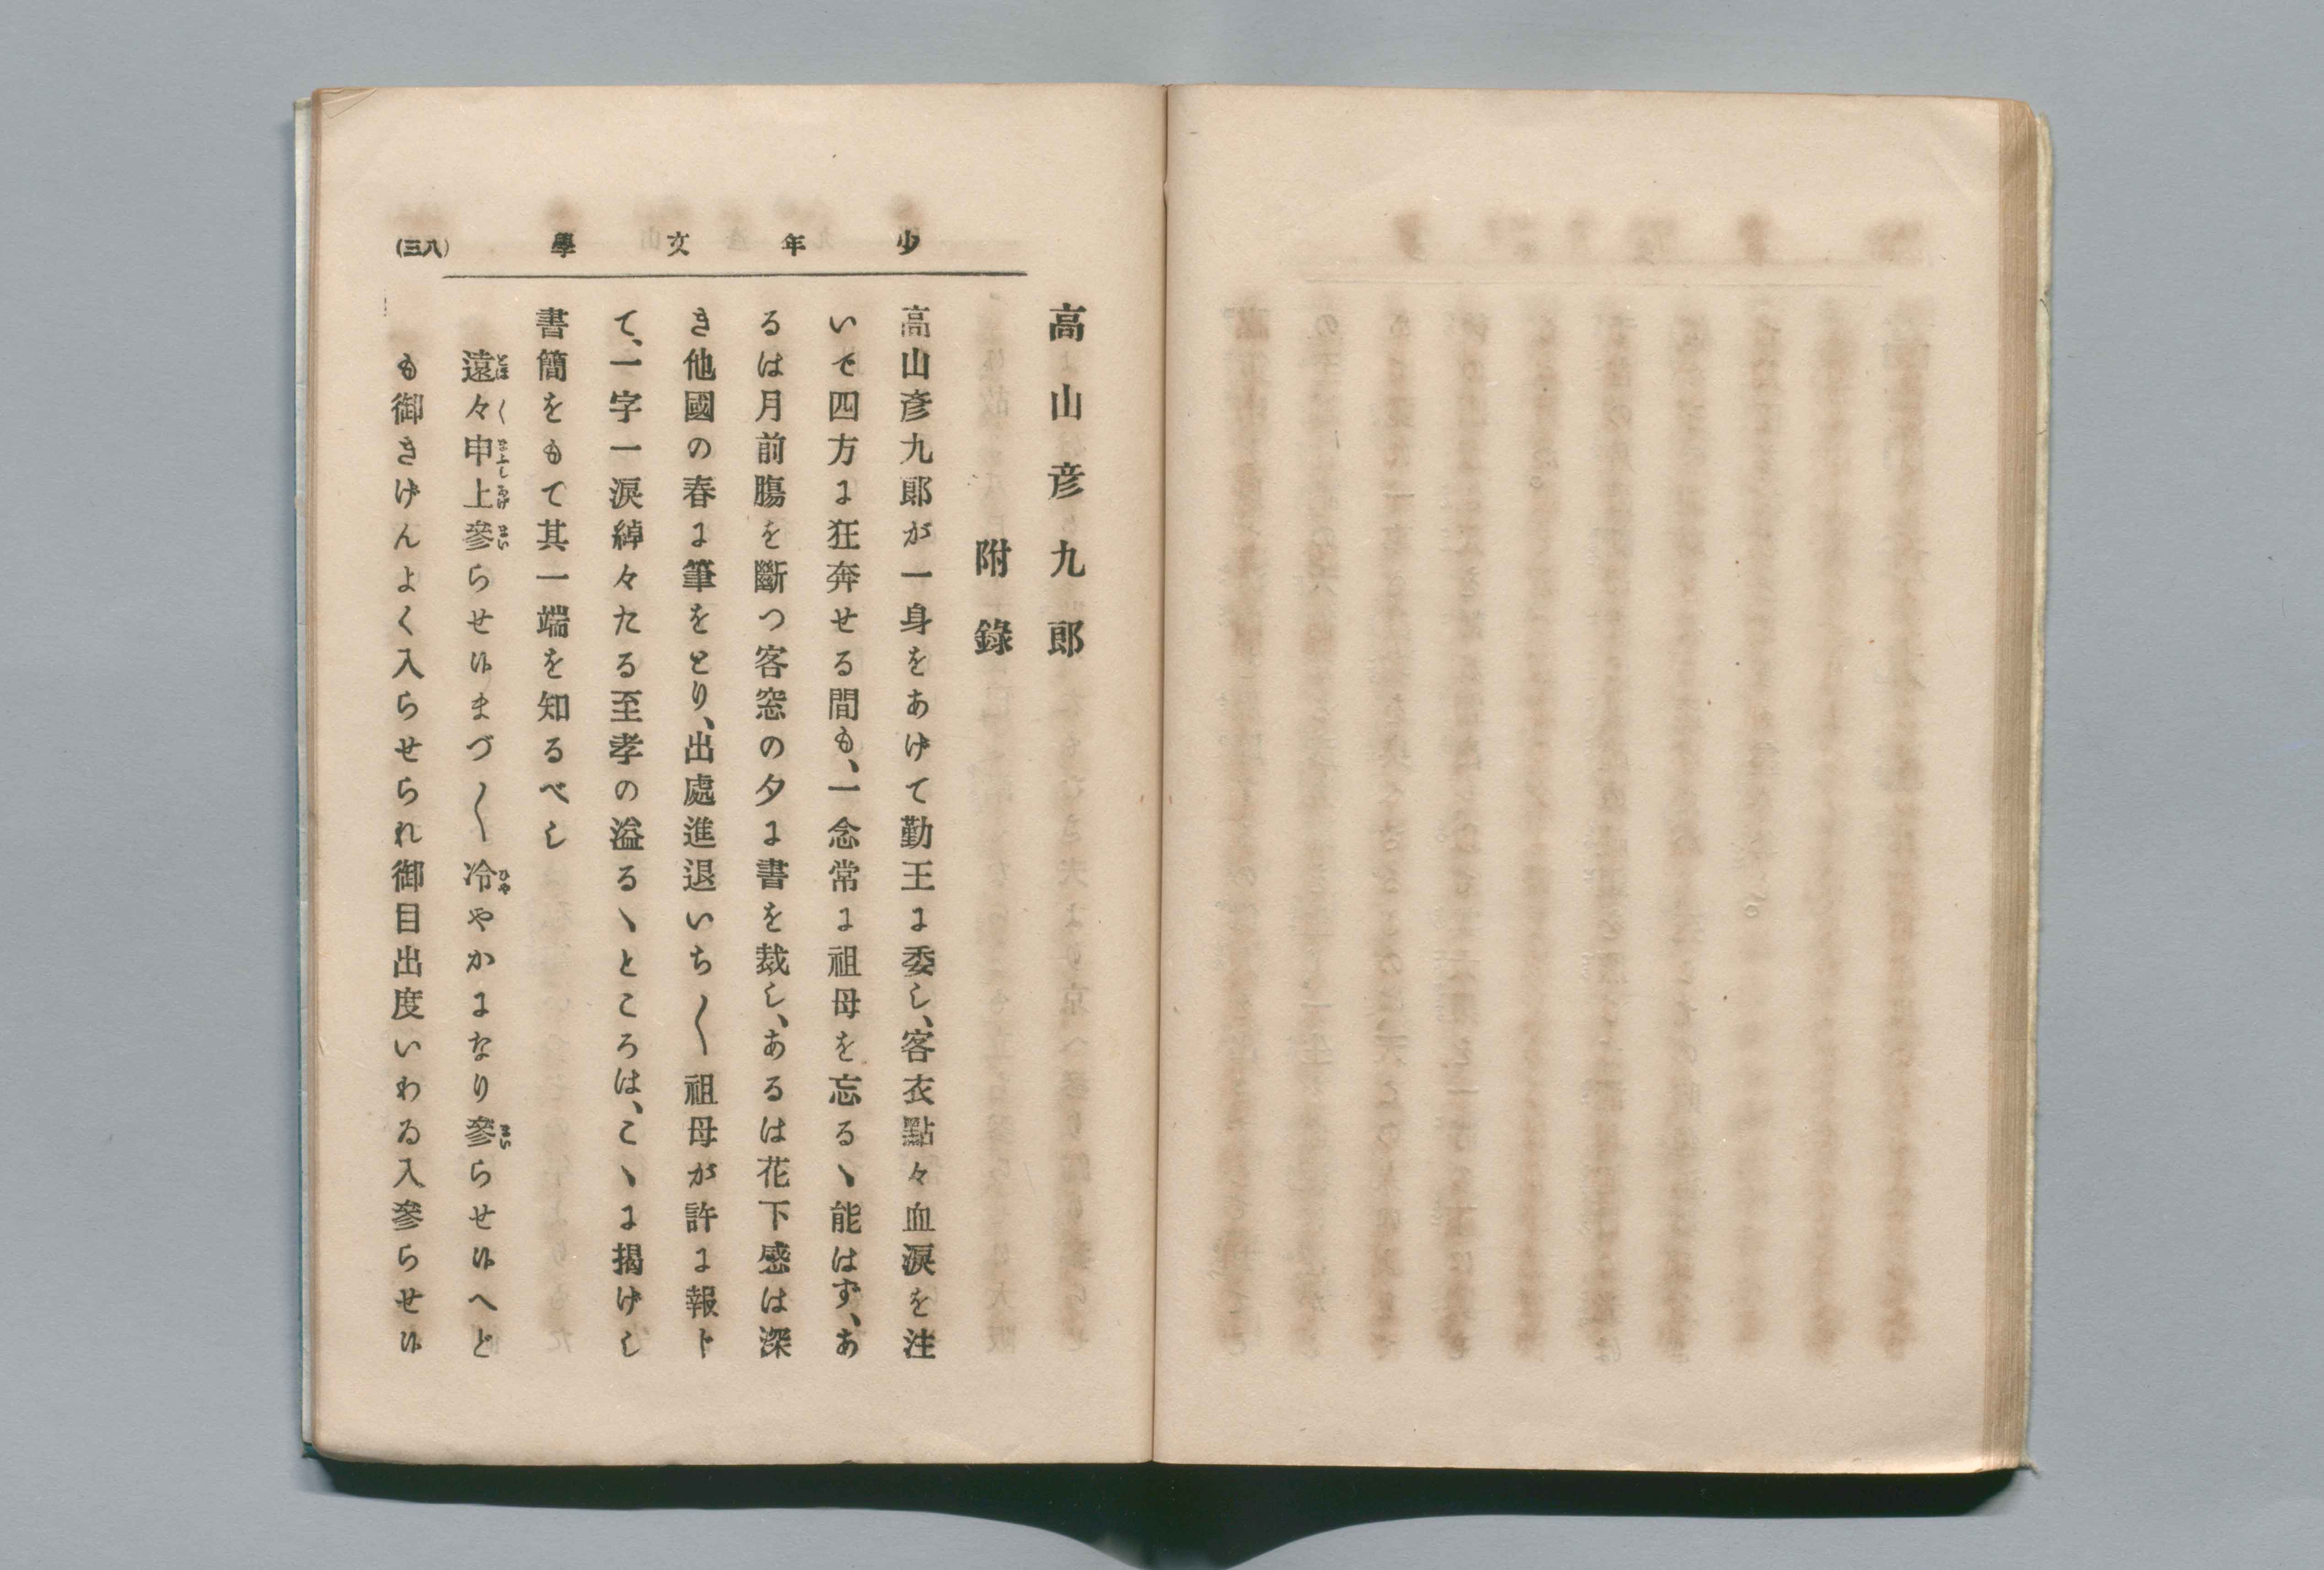 少年文學
(八三)
高山彦九郎
附錄
高山彦九郎が一身をあげて勤王に委し、客衣點々血淚を注
いで四方に狂奔せる間も、一念常に祖母を忘るゝ能はず、あ
るは月前膓を斷つ客窓の夕に書を裁し、あるは花下感は深
き他國の春に筆をとり、出處進退いち〳〵祖母が許に報ト
て、一字一淚綽々たる至孝の溢るゝところは、こゝに揭げし
書簡をもて其一端を知るべし
遠々申上參らせ候まづ〳〵冷やかになり參らせ候へど
も御きげんよく入らせられ御目出度いわる入參らせ候